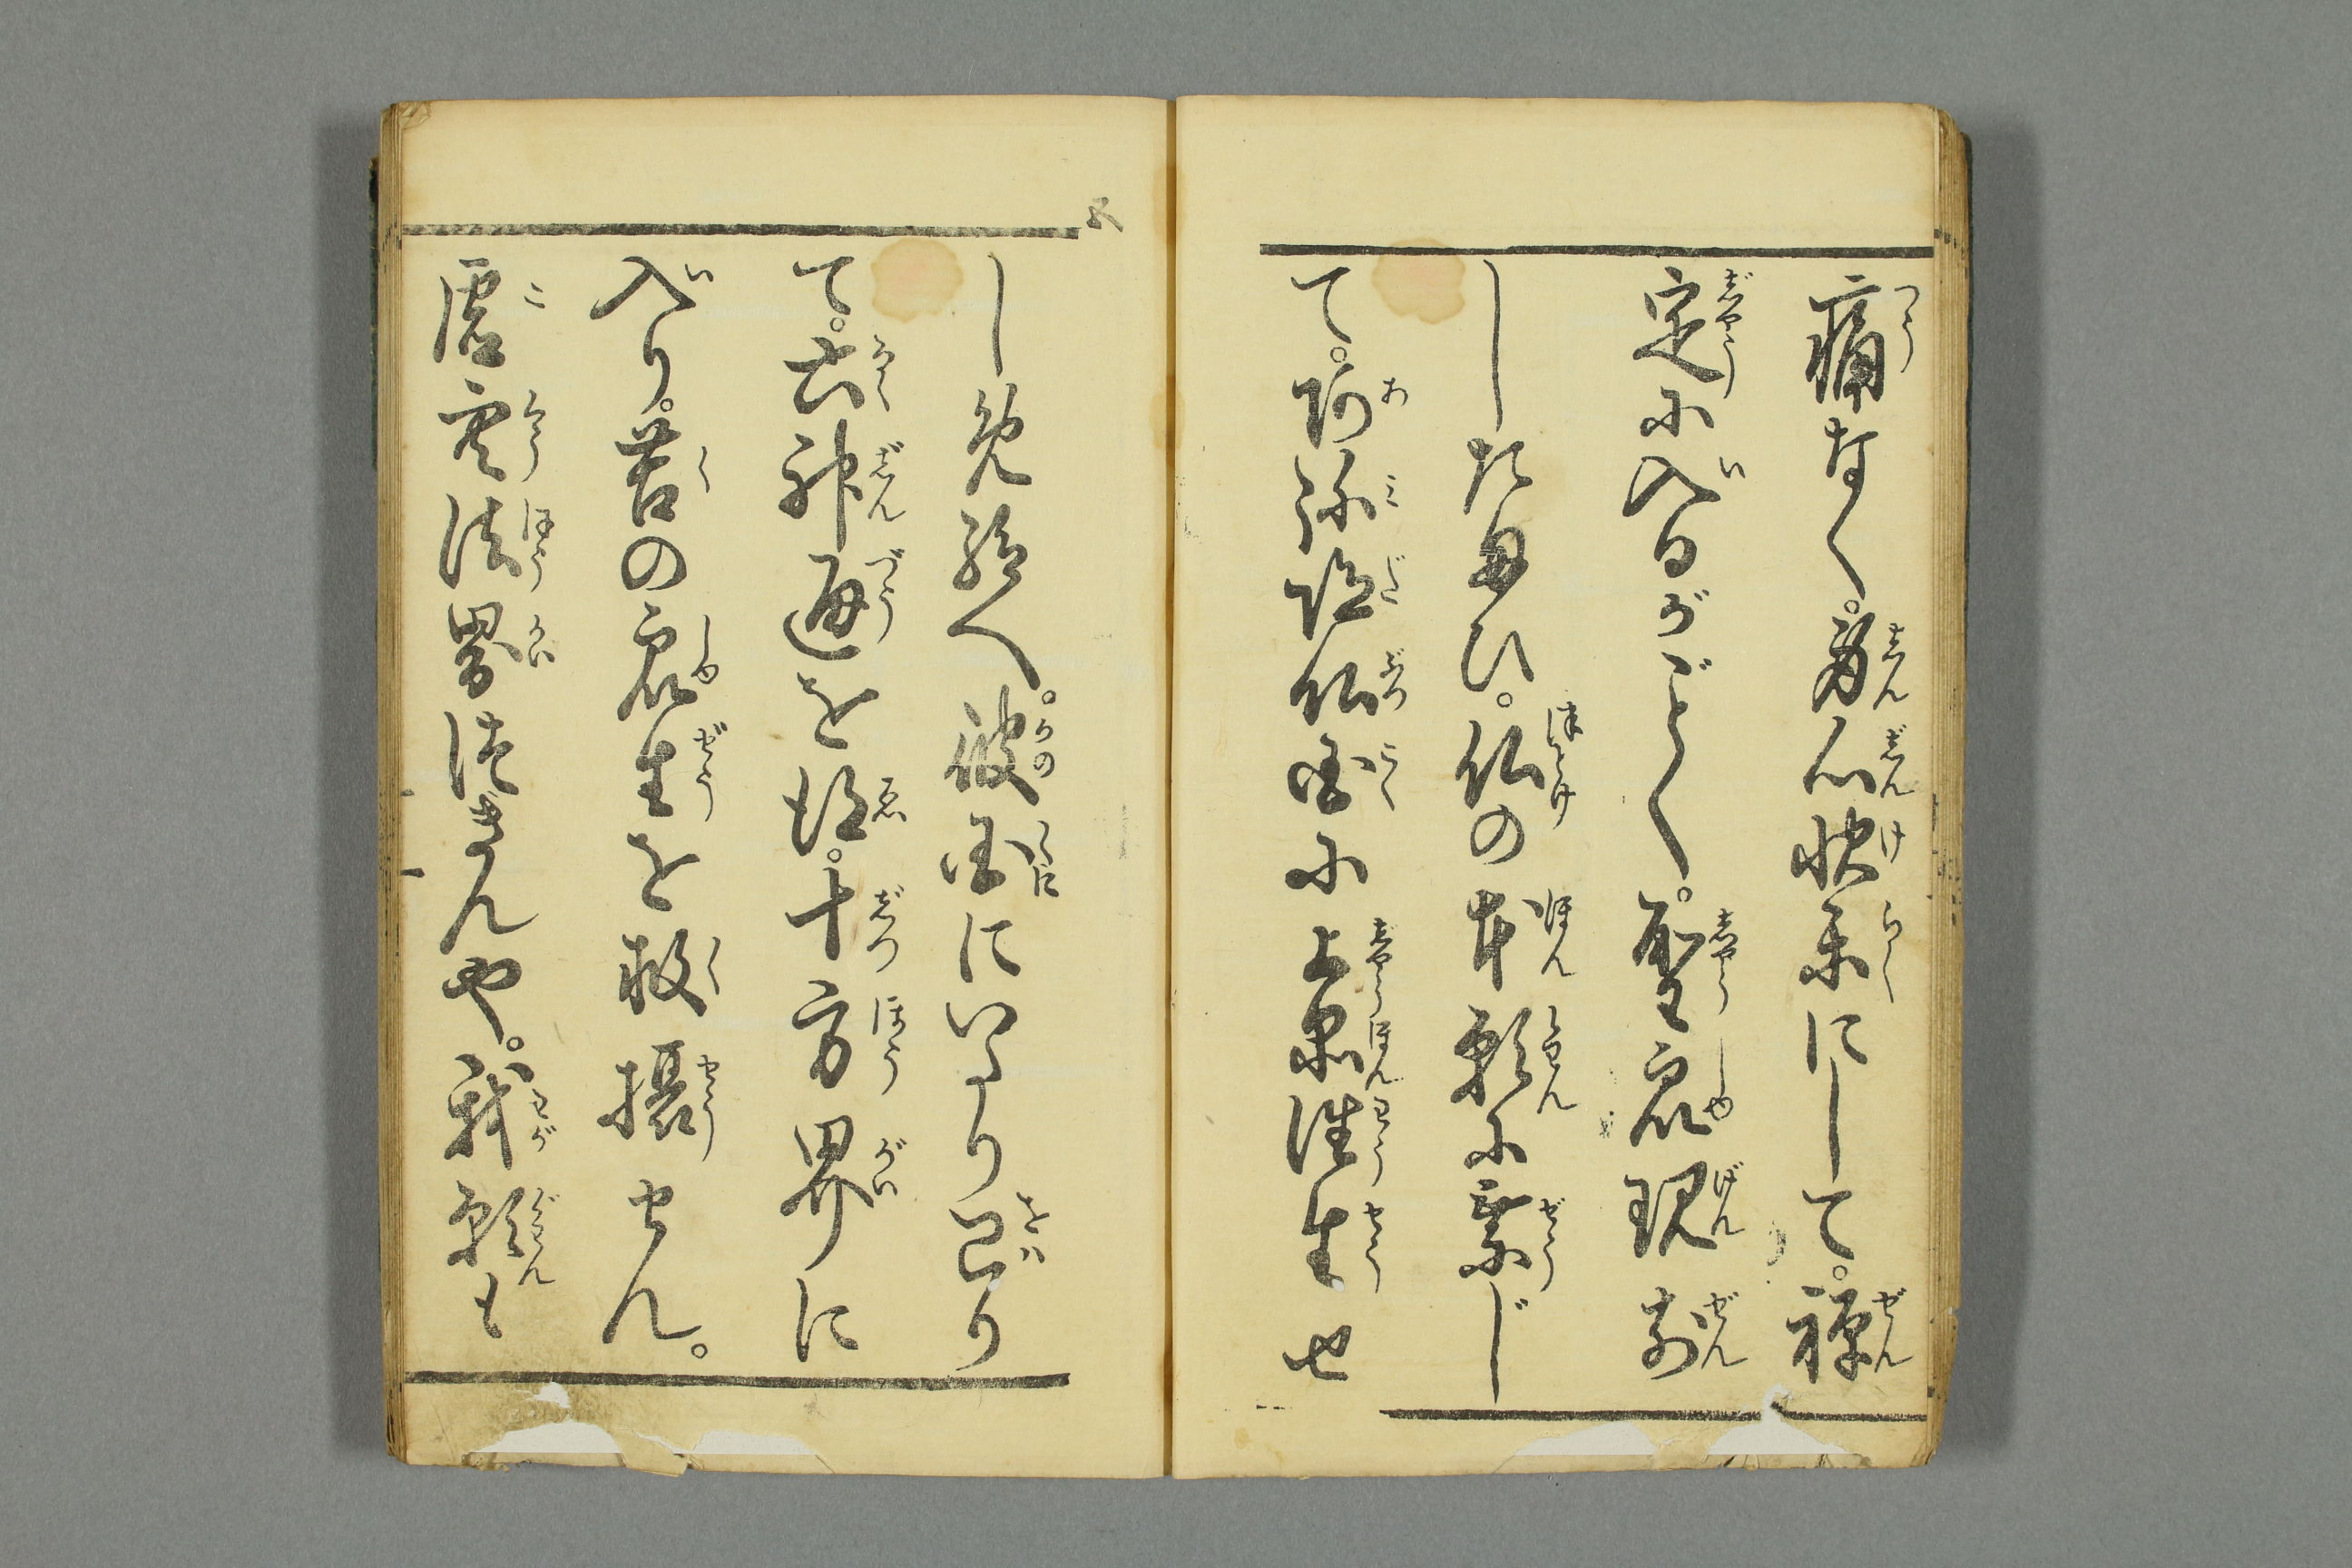 痛なく。身心快楽にして。禅
定に入るがごとく。聖衆現前
したまひ。仏の本願に乗じ
て。阿弥陀仏国に上品往生せ
しめ給へ。彼国にいたり已り
て。六神通を得。十方界に
入り。苦の衆生を救摂せん。
虚空法界尽きんや。我願も